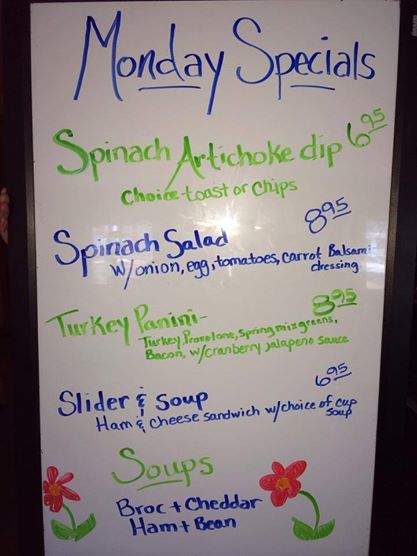 Monday Specials
Spinach Artichoke dip 6.95
Choice toast or Chips
Spinach Salad 8.95
w/onion, egg, tomatoes, carrot Balsamic
dressing
Turkey Panini- 8.95
Turkey, Provolone, Spring mix greens,
Bacon, w/cranberry jalapeno sauce
Slider & soup 6.95
Ham & cheese sandwich w/choice of cup
soup
Soups
Broc + Cheddar
Ham + Bean